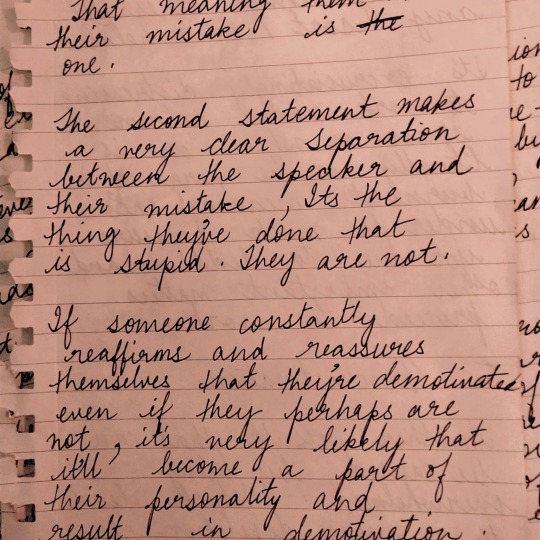 That meaning them
their mistake is the
one.
The second statement makes
a very clear separation
between the speaker and
their mistake, Its the
thing they've done that
is stupid. They are not.
If someone constantly
reaffirms and reassures
themselves that they're demotivated
even if they perhaps are
not, it's very likely that
it'll become a part of
their personality and
result in demotivation.